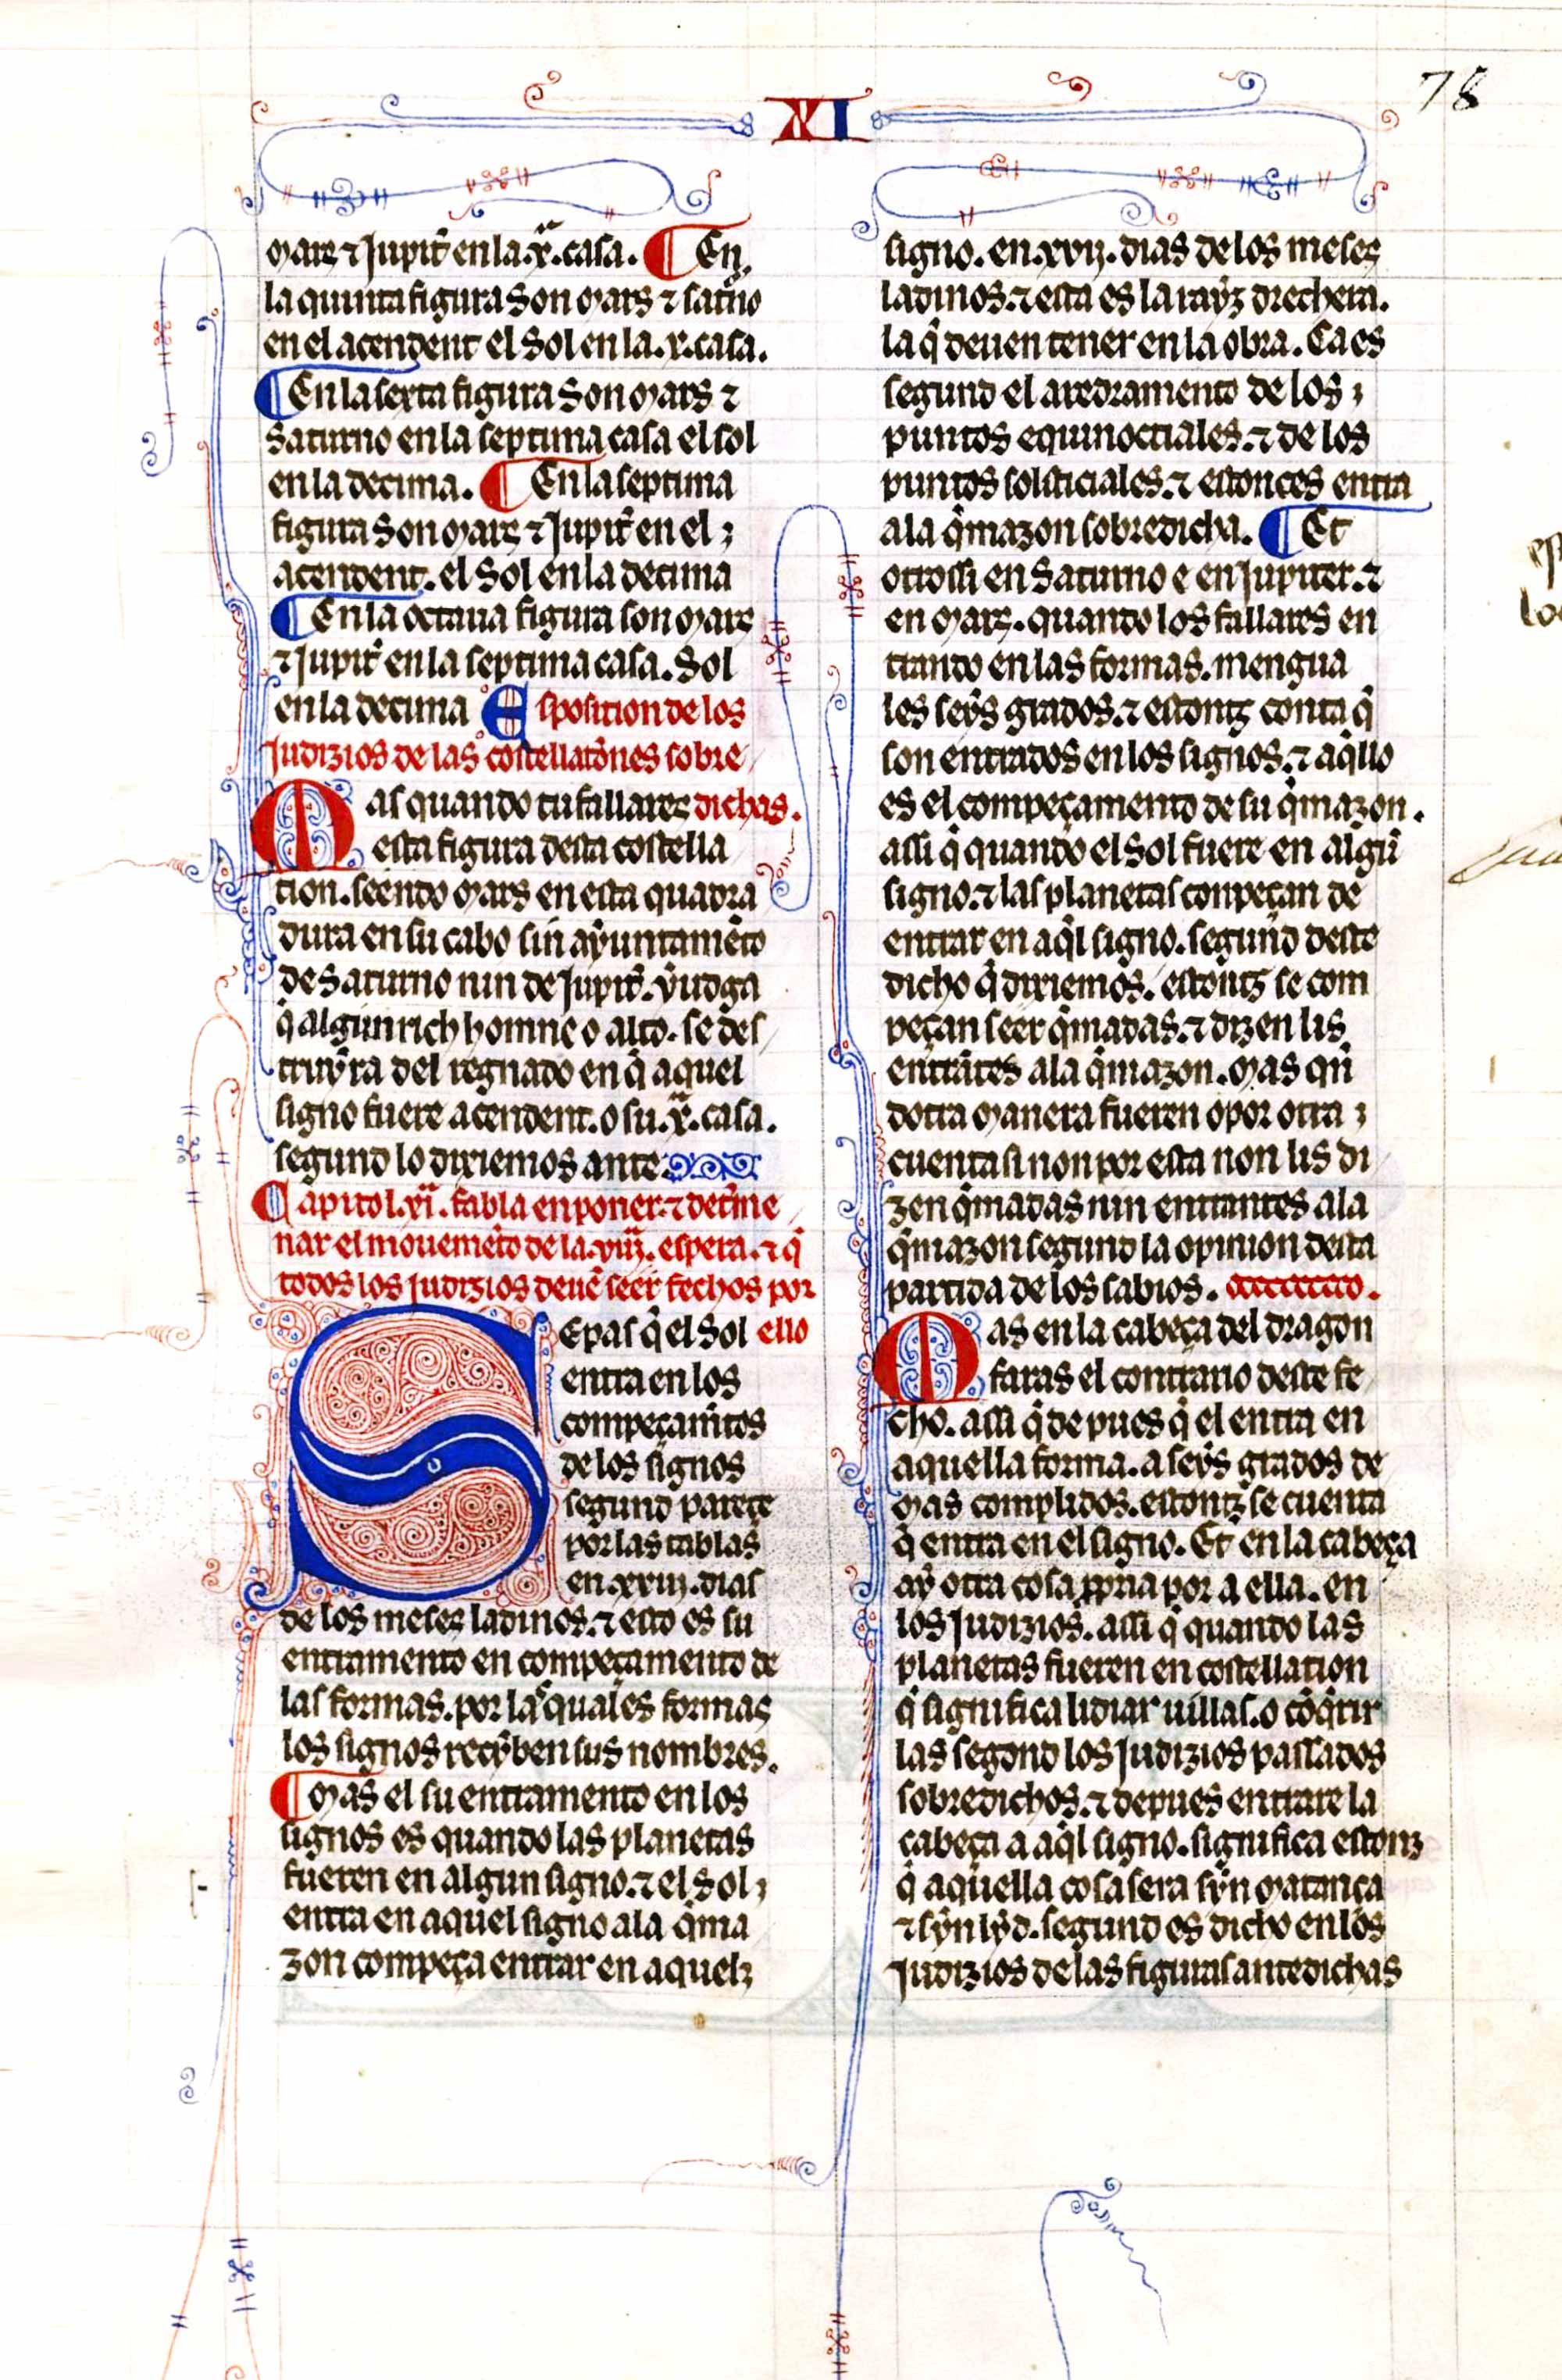 78
XI
Mars ⁊ Jupit̃ en la .xᵃ. casa. ¶ En
la quinta figura son Mars ⁊ sat̃no
en el acendent el Sol en la .x. casa.
¶ En la sexta figura son Mars ⁊
Saturno en la septima casa el sol
en la decima. ¶ En la septima
figura son Mars ⁊ Jupit̃ en el
acendent. el Sol en la decima
¶ En la octaua figura son Mars
⁊ Jupit̃ en la septima casa. Sol
en la decima Esposition de los
Judizios de las costellatiõnes sobre
Mas quando tu fallares dichas.
esta figura desta costella
tion. seendo Mars en esta quadra
dura en su cabo sin aẏuntamẽto
de Saturno nin de Jupit̃. ẏudga
q̃ algun rich homne o alto. se des
truẏra del regnado en q̃ aquel
signo fuere acendent. o su .xᵃ. casa.
segund lo dixiemos ante
Capitol .xi. fabla en poner. ⁊ det̃mi
nar el mouemẽto de la .viij. espera. ⁊ q̃
todos los Judizios deuẽ seer fechos por
Sepas q̃ el Sol ello
entra en los
compeçamĩtos
de los signos
segund pareçe
por las tablas
en .xviij. dias
de los meses ladinos. ⁊ esto es su
entramento en compeçamento de
las formas. por las quales formas
los signos reçẏben sus nombres.
¶ Mas el su entramento en los
signos es quando las planetas
fueren en algun signo. ⁊ el Sol
entra en aquel signo a la q̃ma
zon compeça entrar en aquel
signo. en .xvij. dias de los meses
ladinos. ⁊ esta es la raẏz drechera.
la q̃ deuen tener en la obra. Ca es
segund el aredramento de los
puntos equinoctiales. ⁊ de los
puntos solsticiales. ⁊ estonces entra
a la q̃mazon sobredicha. ¶ Et
otrossi en Saturno e en Jupiter. ⁊
en Mars. quando los fallares en
trando en las formas. mengua
les seẏs grados. ⁊ estonz conta q̃
son entrados en los signos. ⁊ aq̃llo
es el compeçamento de su q̃mazon.
assi q̃ quando el Sol fuere en algũ
signo. ⁊ las planetas conpeçan de
entrar en aq̃l signo. segund deste
dicho q̃ dixiemos. estonz se com
peçan seer q̃madas. ⁊ dizen lis
entrãtes a la q̃mazon. Mas qñ
dotra manera fueren o por otra
cuenta si non por esta non lis di
zen q̃madas nin entrantes a la
q̃mazon segund la opinion desta
partida de los sabios.
Mas en la cabeça del dragon
faras el contrario deste fe
cho. assi q̃ depues q̃ el entra en
aquella forma. a seẏs grados de
mas complidos. estonz se cuenta
q̃ entra en el signo. Et en la cabeça
aẏ otra cosa ꝓpria por a ella. en
los Judizios. assi q̃ quando las
planetas fueren en costellation
q̃ significa lidiar uillas. o cõq̃rir
las segond los Judizios passados
sobredichos. ⁊ depues entrare la
cabeça a aq̃l signo. significa estonz
q̃ aquella cosa sera sẏn matança
⁊ sẏn lẏd. segund es dicho en los
Judizios de las figuras antedichas